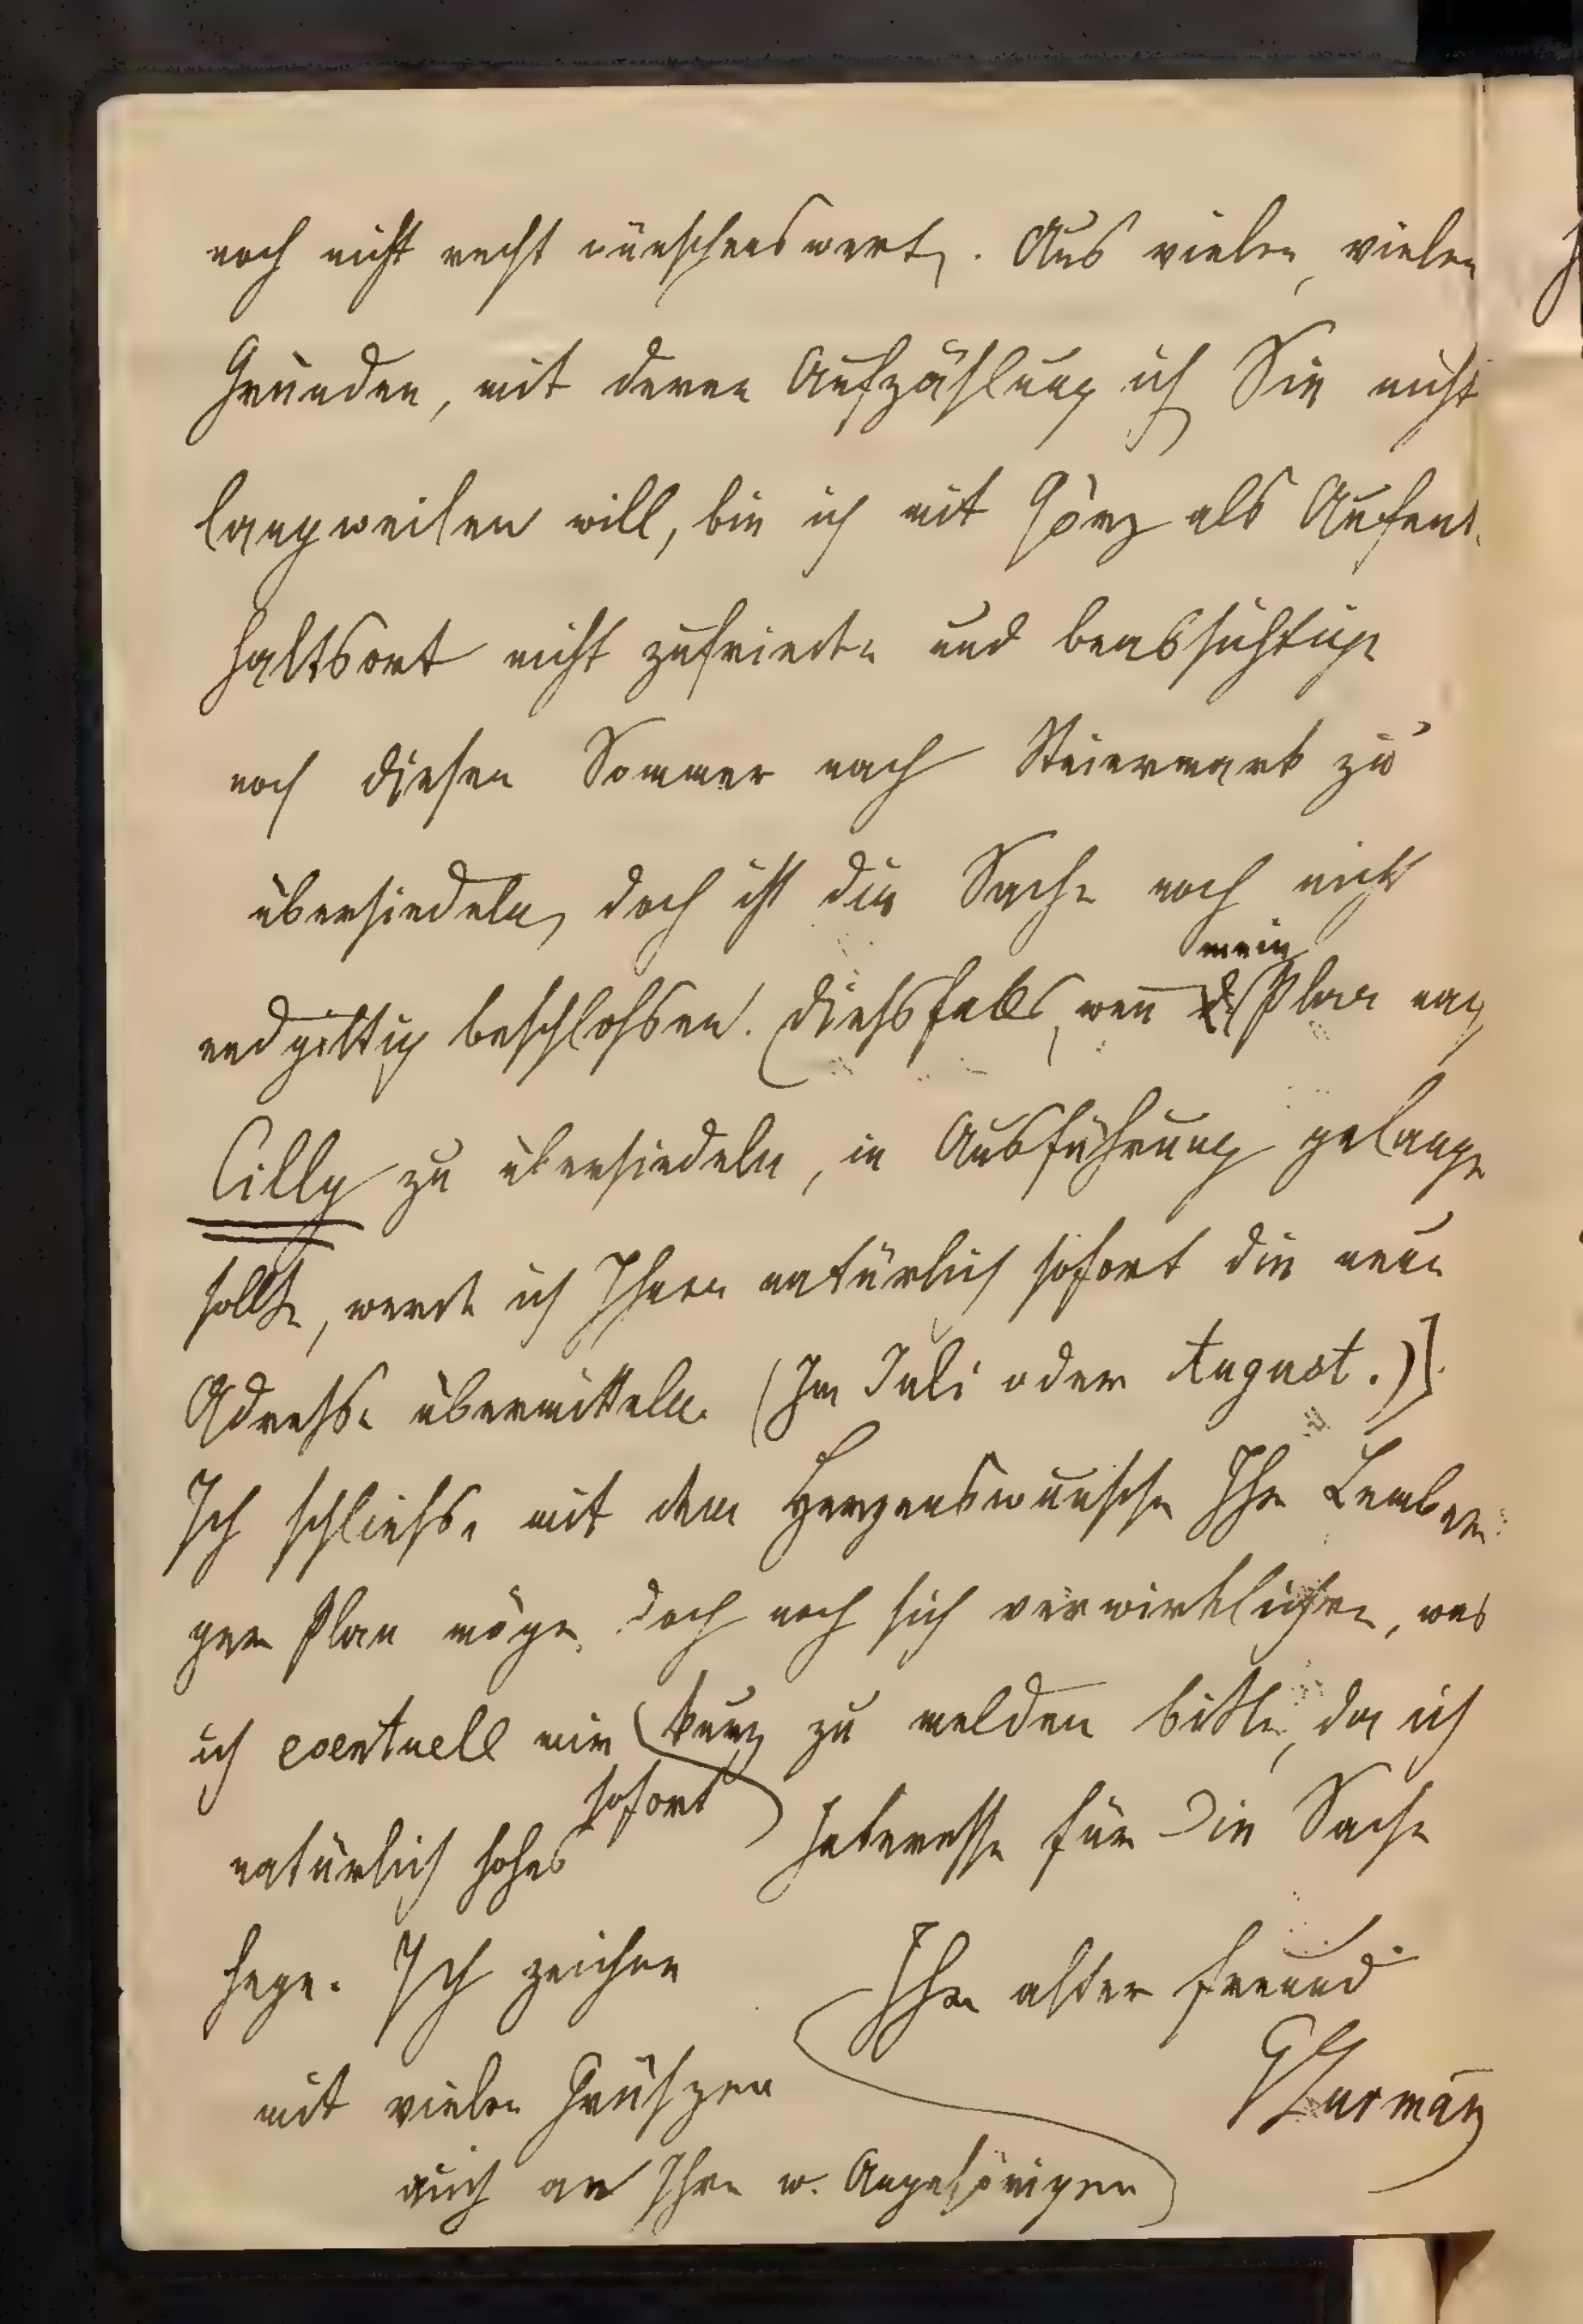 noch nicht recht wünschenswert. Aus vielen, vielen
Gründen, mit deren Aufzählung ich Sie nicht
langweilen will, bin ich mit Görz als Aufent-
haltsort nicht zufrieden und beabsichtige
noch diesen Sommer nach Steiermark zu
übersiedeln, doch ist die Sache noch nicht
mein
endgiltig beschlossen. (Diessfalls, wenn Plan nach
Cilly zu übersiedeln, in Ausführung gelangen
sollte, werde ich Ihnen natürlich sofort die neue
Adresse übermitteln. (Im Juli oder August.)]
Ich schliesse mit dem Herzenswunsche Ihr Lember-
ger Plan möge doch noch sich verwirklichen, was
ich eventuell mir kurz zu melden bitte, da ich
sofort
natürlich hohes Interesse für die Sache
hege. Ich zeichne Ihr alter Freund
mit vielen Grüszen
auch an Ihre w. Angehörigen